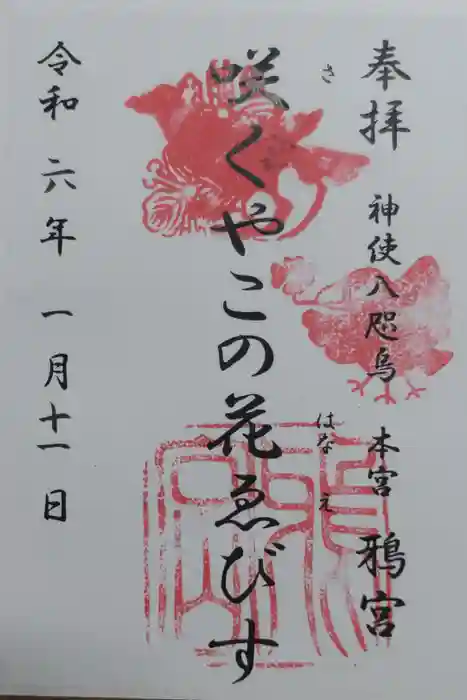 奉拝 神使八咫烏 本宮 鴉宮
咲くやこの花ゑびす
さ
はな
え
令和六年一月十一日